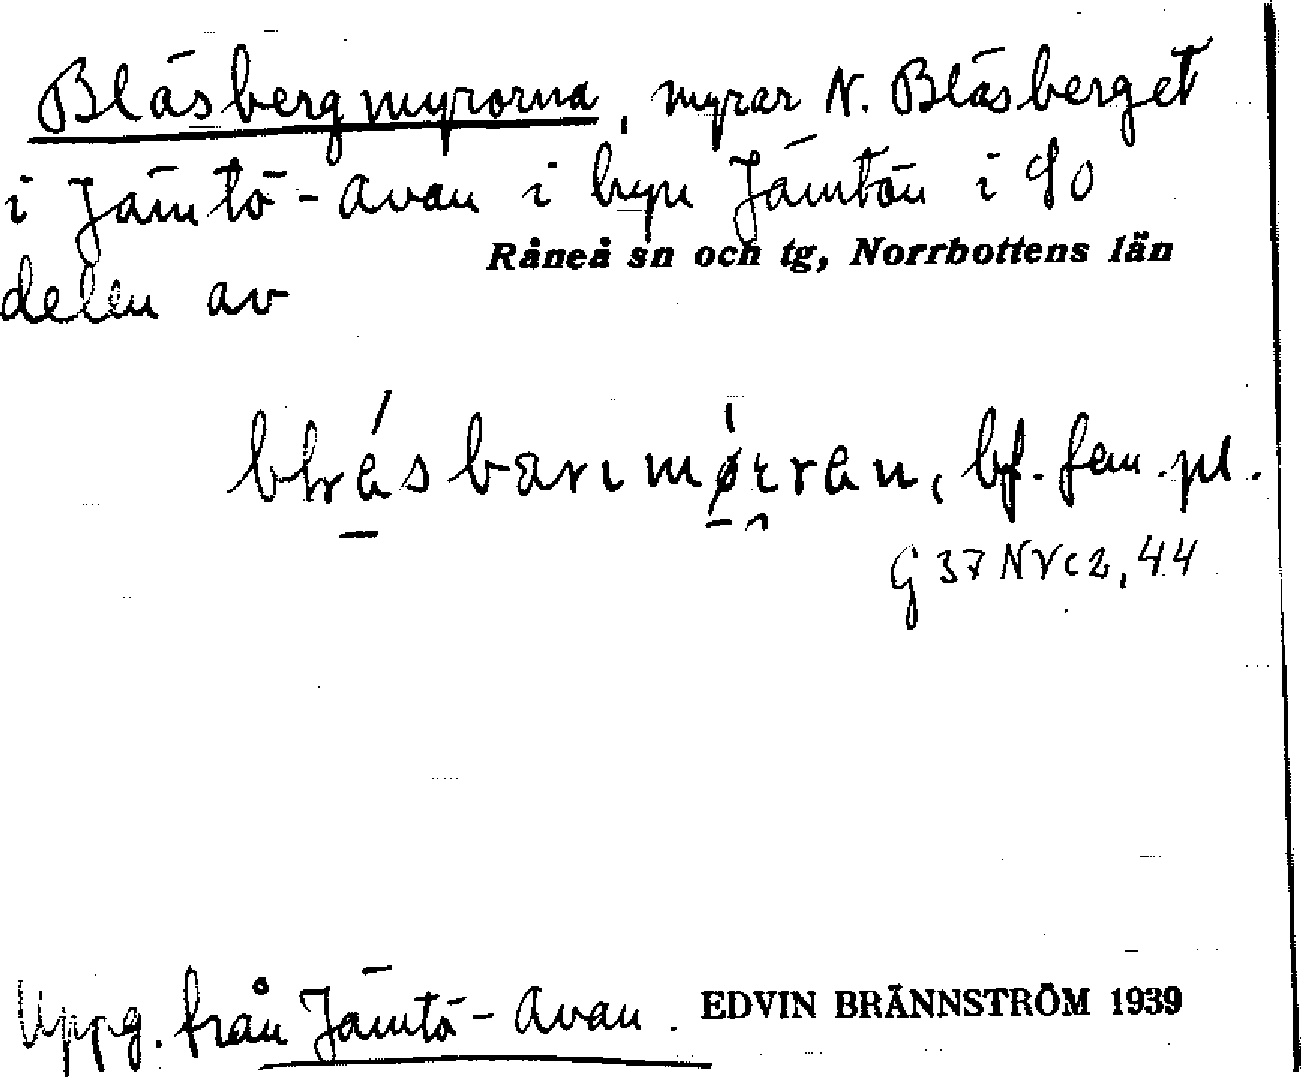 Bläsbergmyrorna, myrar N. Bläsberget
i Jämtö-Avan i byn Jämtön i SO
Råneå sn och tg, Norrbottens län
delen av
bf. fem. pl.
G 37 NVc2, 44
Uppg. från Jämtö-Avan. EDVIN BRÄNNSTRÖM 1939